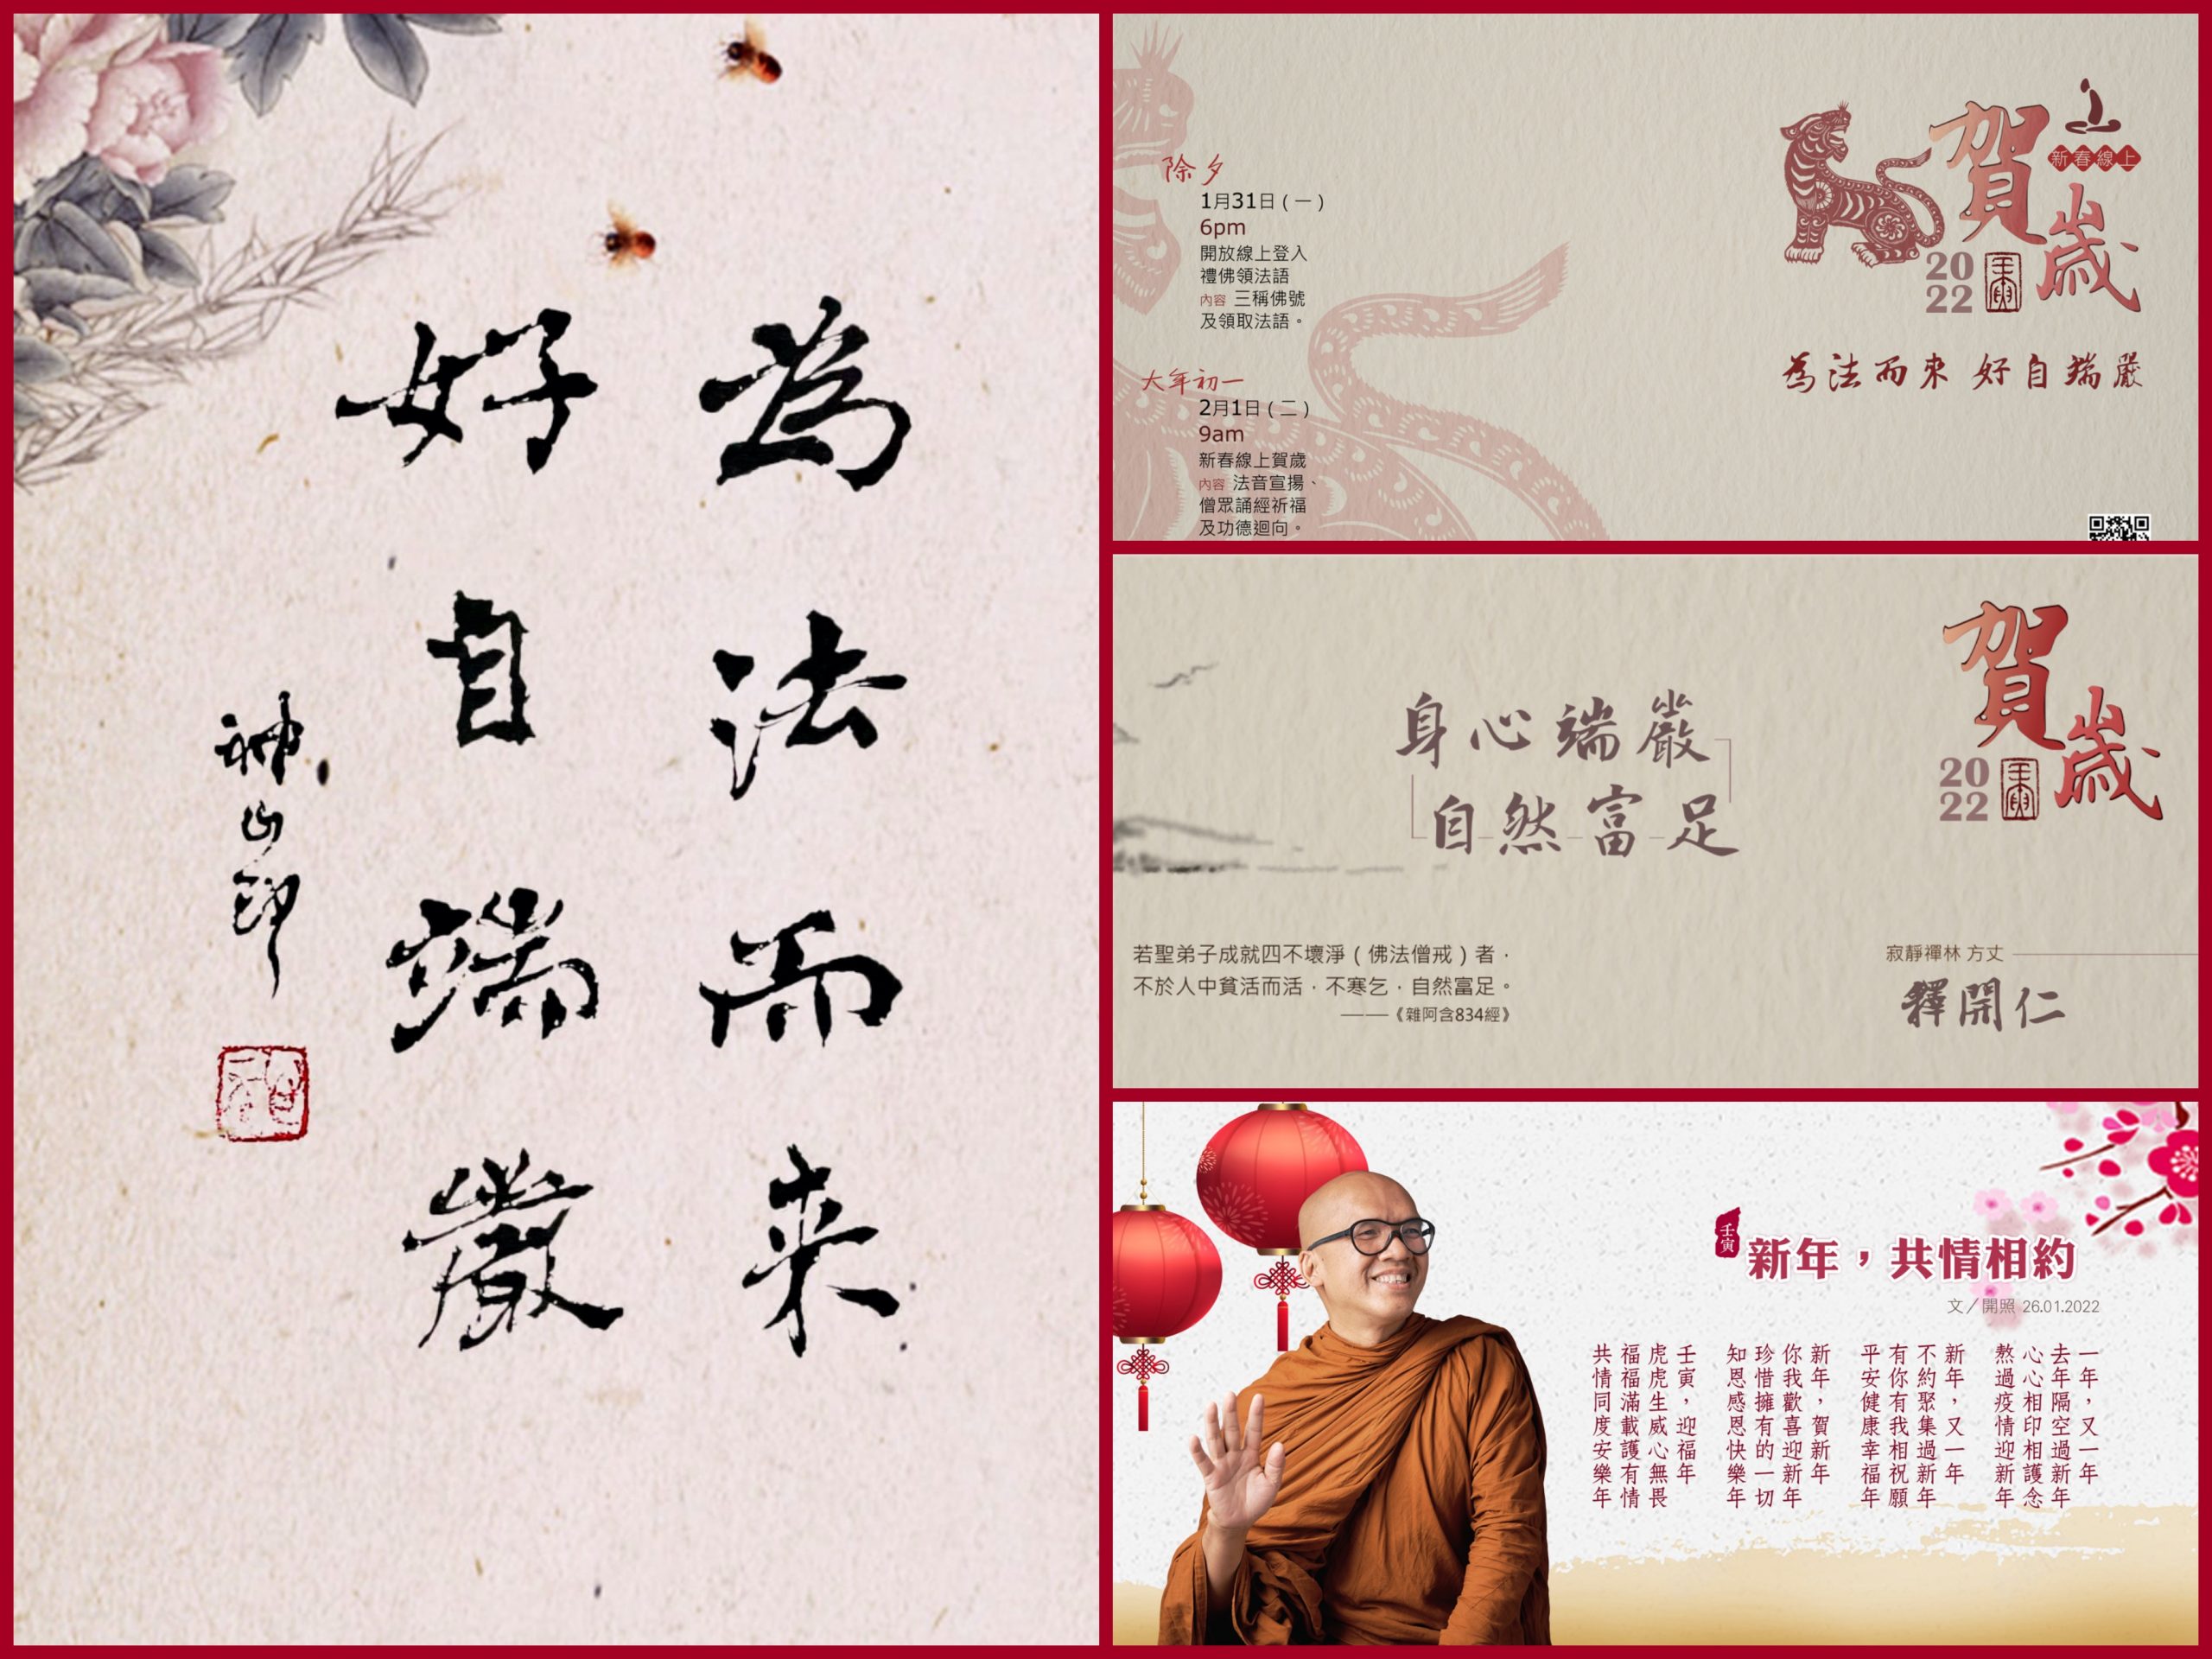 為法而来
好自端嚴
神山印
除夕
1月31日(一)
6pm
開放線上登入
禮佛領法語
內容 三稱佛號
及領取法語。
大年初一
2月1日(二)
9am
新春線上賀歲
內容 法音宣揚、
僧眾誦經祈福
及功德迴向。
賀歲
新春線上
2022
壬寅
為法而來 好自端嚴
賀歲
2022
壬寅
身心端嚴
自然富足
若聖弟子成就四不壞淨(佛法僧戒)者,
不於人中貧活而活,不寒乞,自然富足。
——《雜阿含834經》
寂靜禪林 方丈
釋開仁
壬寅
新年,共情相約
文/開照 26.01.2022
一年,又一年
去年隔空過新年
心心相印相護念
熬過疫情迎新年
新年,又一年
不約聚集過新年
有你有我相祝願
平安健康幸福年
新年,賀新年
你我歡喜迎新年
珍惜擁有的一切
知恩感恩快樂年
壬寅,迎福年
虎虎生威心無畏
福福滿載護有情
共情同度安樂年